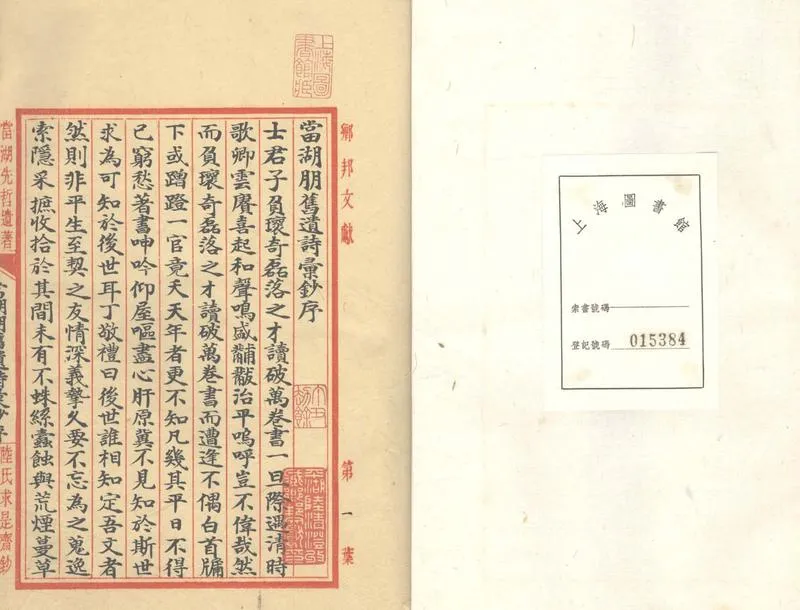 上海圖
書館藏
鄉邦文獻
第一葉
當湖朋舊遺詩彙鈔序
士君子負瓌奇磊落之才讀破萬卷書一旦際遇清時
歌卿雲賡喜起和聲鳴盛黼黻治平嗚呼豈不偉哉然
而負瓌奇磊落之才讀破萬卷書而遭逢不偶白首牖
下或蹭蹬一官竟夭天年者更不知凡幾其平日不得
已窮愁著書呻吟仰屋嘔盡心肝原冀不見知於斯世
求為可知於後世耳丁敬禮曰後世誰相知定吾文者
然則非平生至契之友情深義摯久要不忘為之蒐逸
索隱采摭收拾於其間未有不蛛絲蠹蝕與荒煙蔓草
當湖先哲遺著
當湖朋舊遺詩彙鈔序
陸氏求是齋鈔
上海圖書館
索書號碼
登記號碼 015384